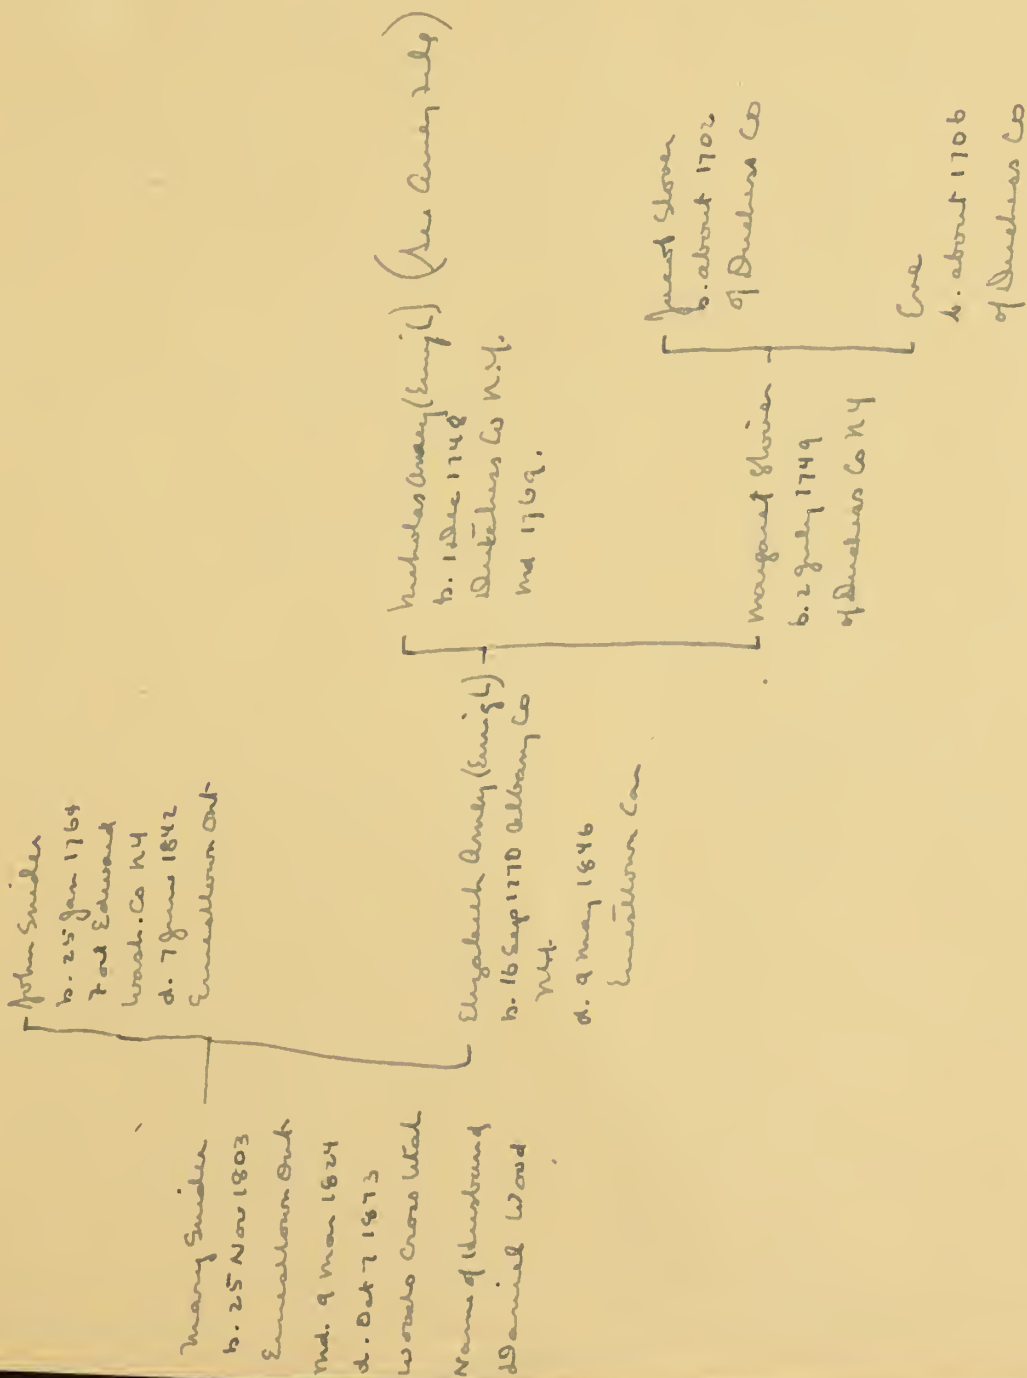 Mary Snider
b. 25 Nov 1803
Ernesttown Ont
md. 9 Mar 1824
d. Oct 7 1873
Woods Cross Utah
Name of Husband
Daniel Wood
John Snider
b. 25 Jan 1764
Fort Edward
Wash. Co N Y
d. 7 June 1842
Ernesttown Ont
Elizabeth Amey (Emigh)
b. 16 Sep 1770 Albany Co
N.Y.
d. 9 May 1846
Ernesttown Can
Nicholas Amey (Emigh) (See Amey
b. 1 Dec 1748
Dutchess Co N.Y.
md 1769.
Margaret Stover
b. 2 July 1749
of Duchess Co N Y
Jacob Stover
b. about 1702
of Duchess Co
Eve
b. about 1706
of Duchess Co